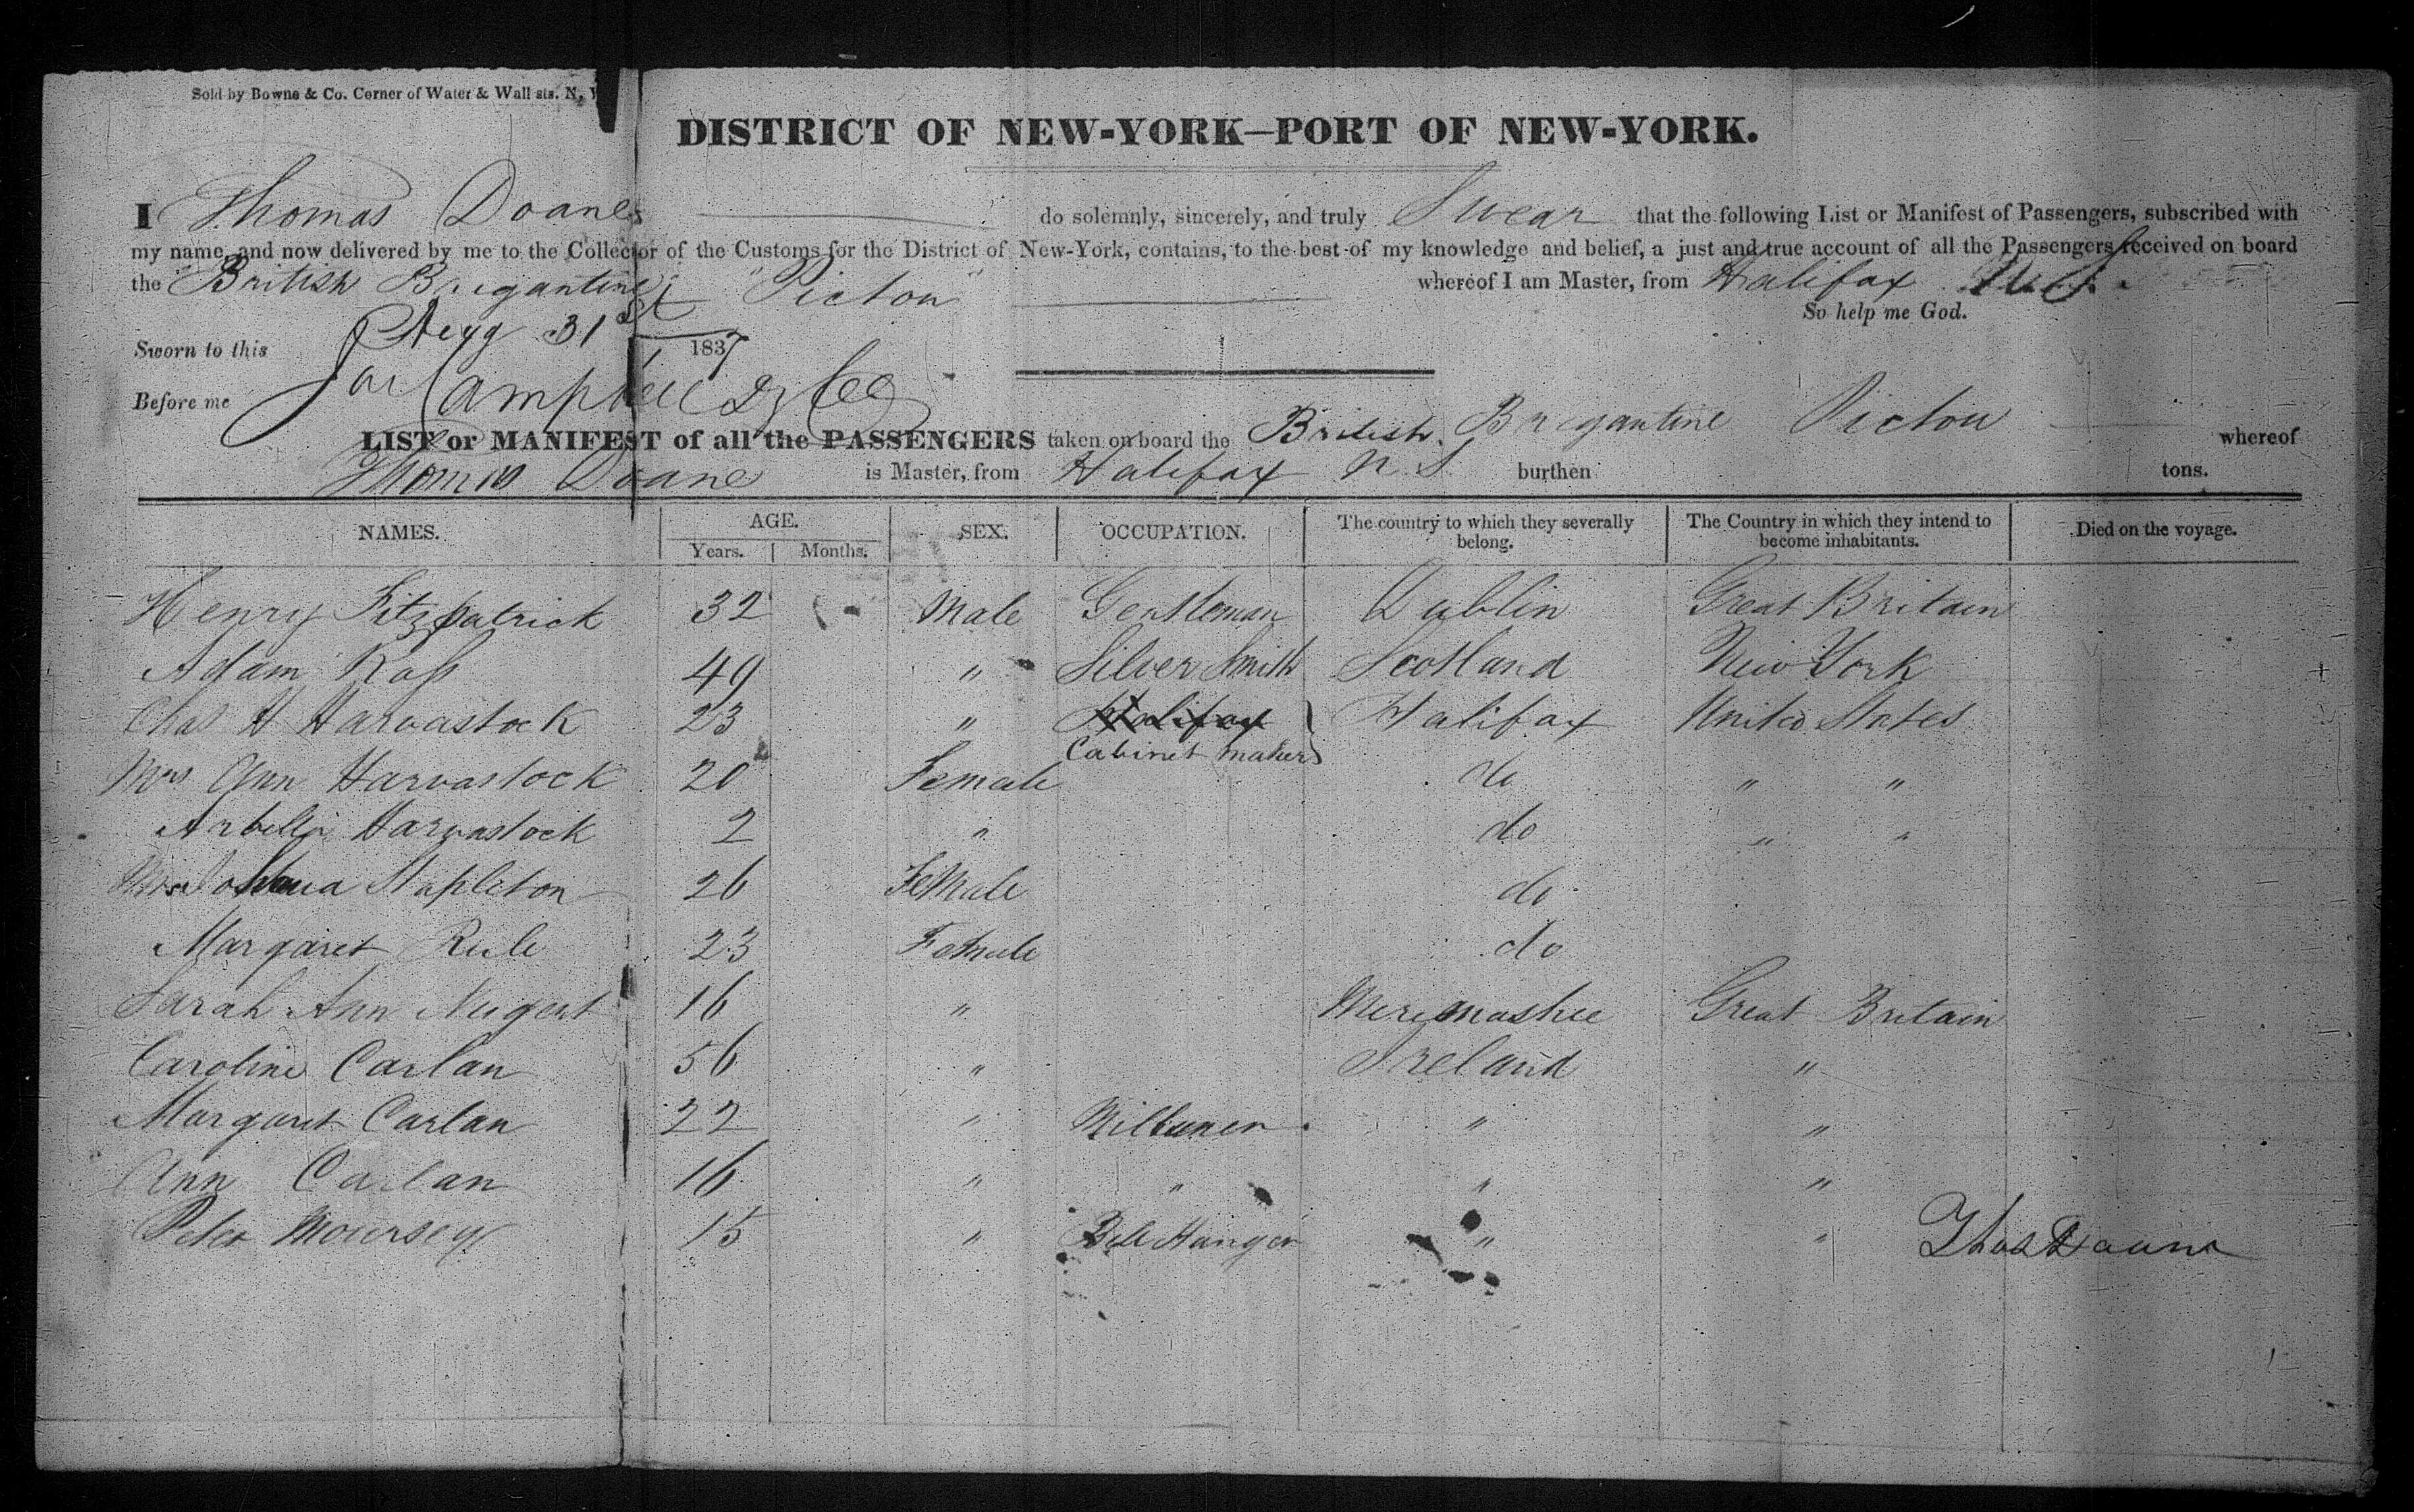 Sold by Bowne & Co. Corner of Water & Wall sts. N. Y
DISTRICT OF NEW-YORK—PORT OF NEW-YORK.
I Thomas Doane do solemnly, sincerely, and truly Swear that the following List or Manifest of Passengers, subscribed with
my name, and now delivered by me to the Collector of the Customs for the District of New-York, contains, to the best of my knowledge and belief, a just and true account of all the Passengers received on board
the British Brigantine "Pictou" whereof I am Master, from Halifax N.S.
So help me God.
Sworn to this Augg 31st 1837
Before me Campbell
LIST or MANIFEST of all the PASSENGERS taken on board the British Brigantine Pictou whereof
Thomas Doane is Master, from Halifax N.S. burthen tons.
NAMES. AGE. SEX. OCCUPATION. The country to which they severally belong. The Country in which they intend to become inhabitants. Died on the voyage.
Years. Months.
Henry Fitzpatrick 32 Male Gentleman Dublin Great Britain
Adam Ross 49 " Silver Smith Scotland New York
Chas H Harvastock 23 " Halifax Halifax United States
Cabinet maker
Mrs Ann Harvastock 20 Female do " "
Arbella Harvastock 2 " do " "
Mrs Stapleton 26 Female do
Margaret Rule 23 Female do
Sarah Ann Nugent 16 " Meremashee Great Britain
Caroline Carlan 56 " Ireland "
Margaret Carlan 22 " Milluner " "
Ann Carlan 16 " " " "
Peter 15 " Bell Hanger " "
Thos Doane